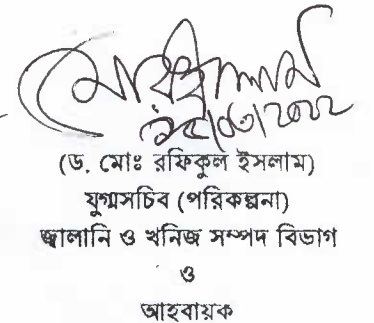 (ড. মোঃ রফিকুল ইসলাম)
যুগ্মসচিব (পরিকল্পনা)
জ্বালানি ও খনিজ সম্পদ বিভাগ
ও
আহবায়ক